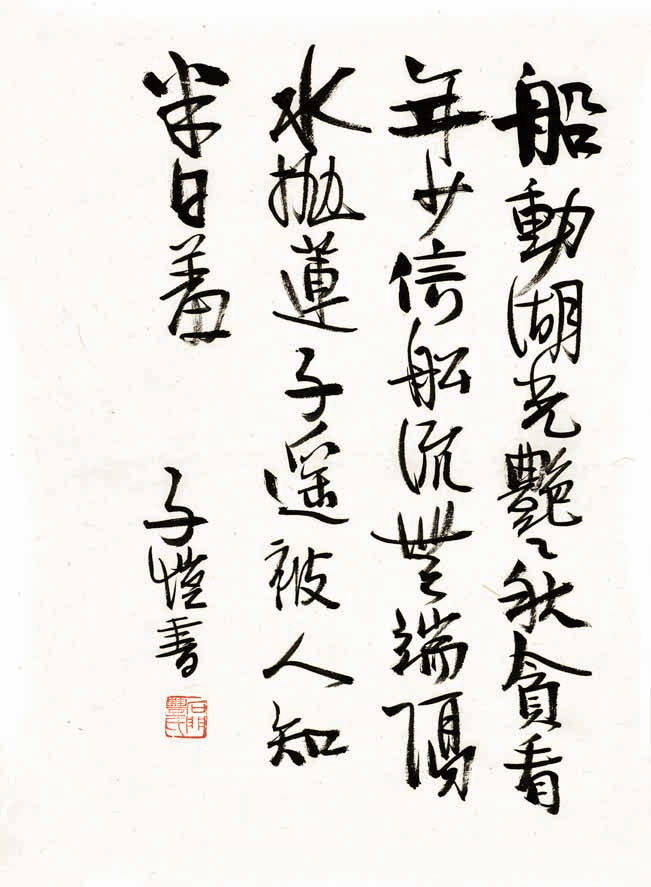 船動湖光艷〻秋貪看
年少信船流無端隔
水抛蓮子遥被人知
半日羞
子愷書
石門豐氏